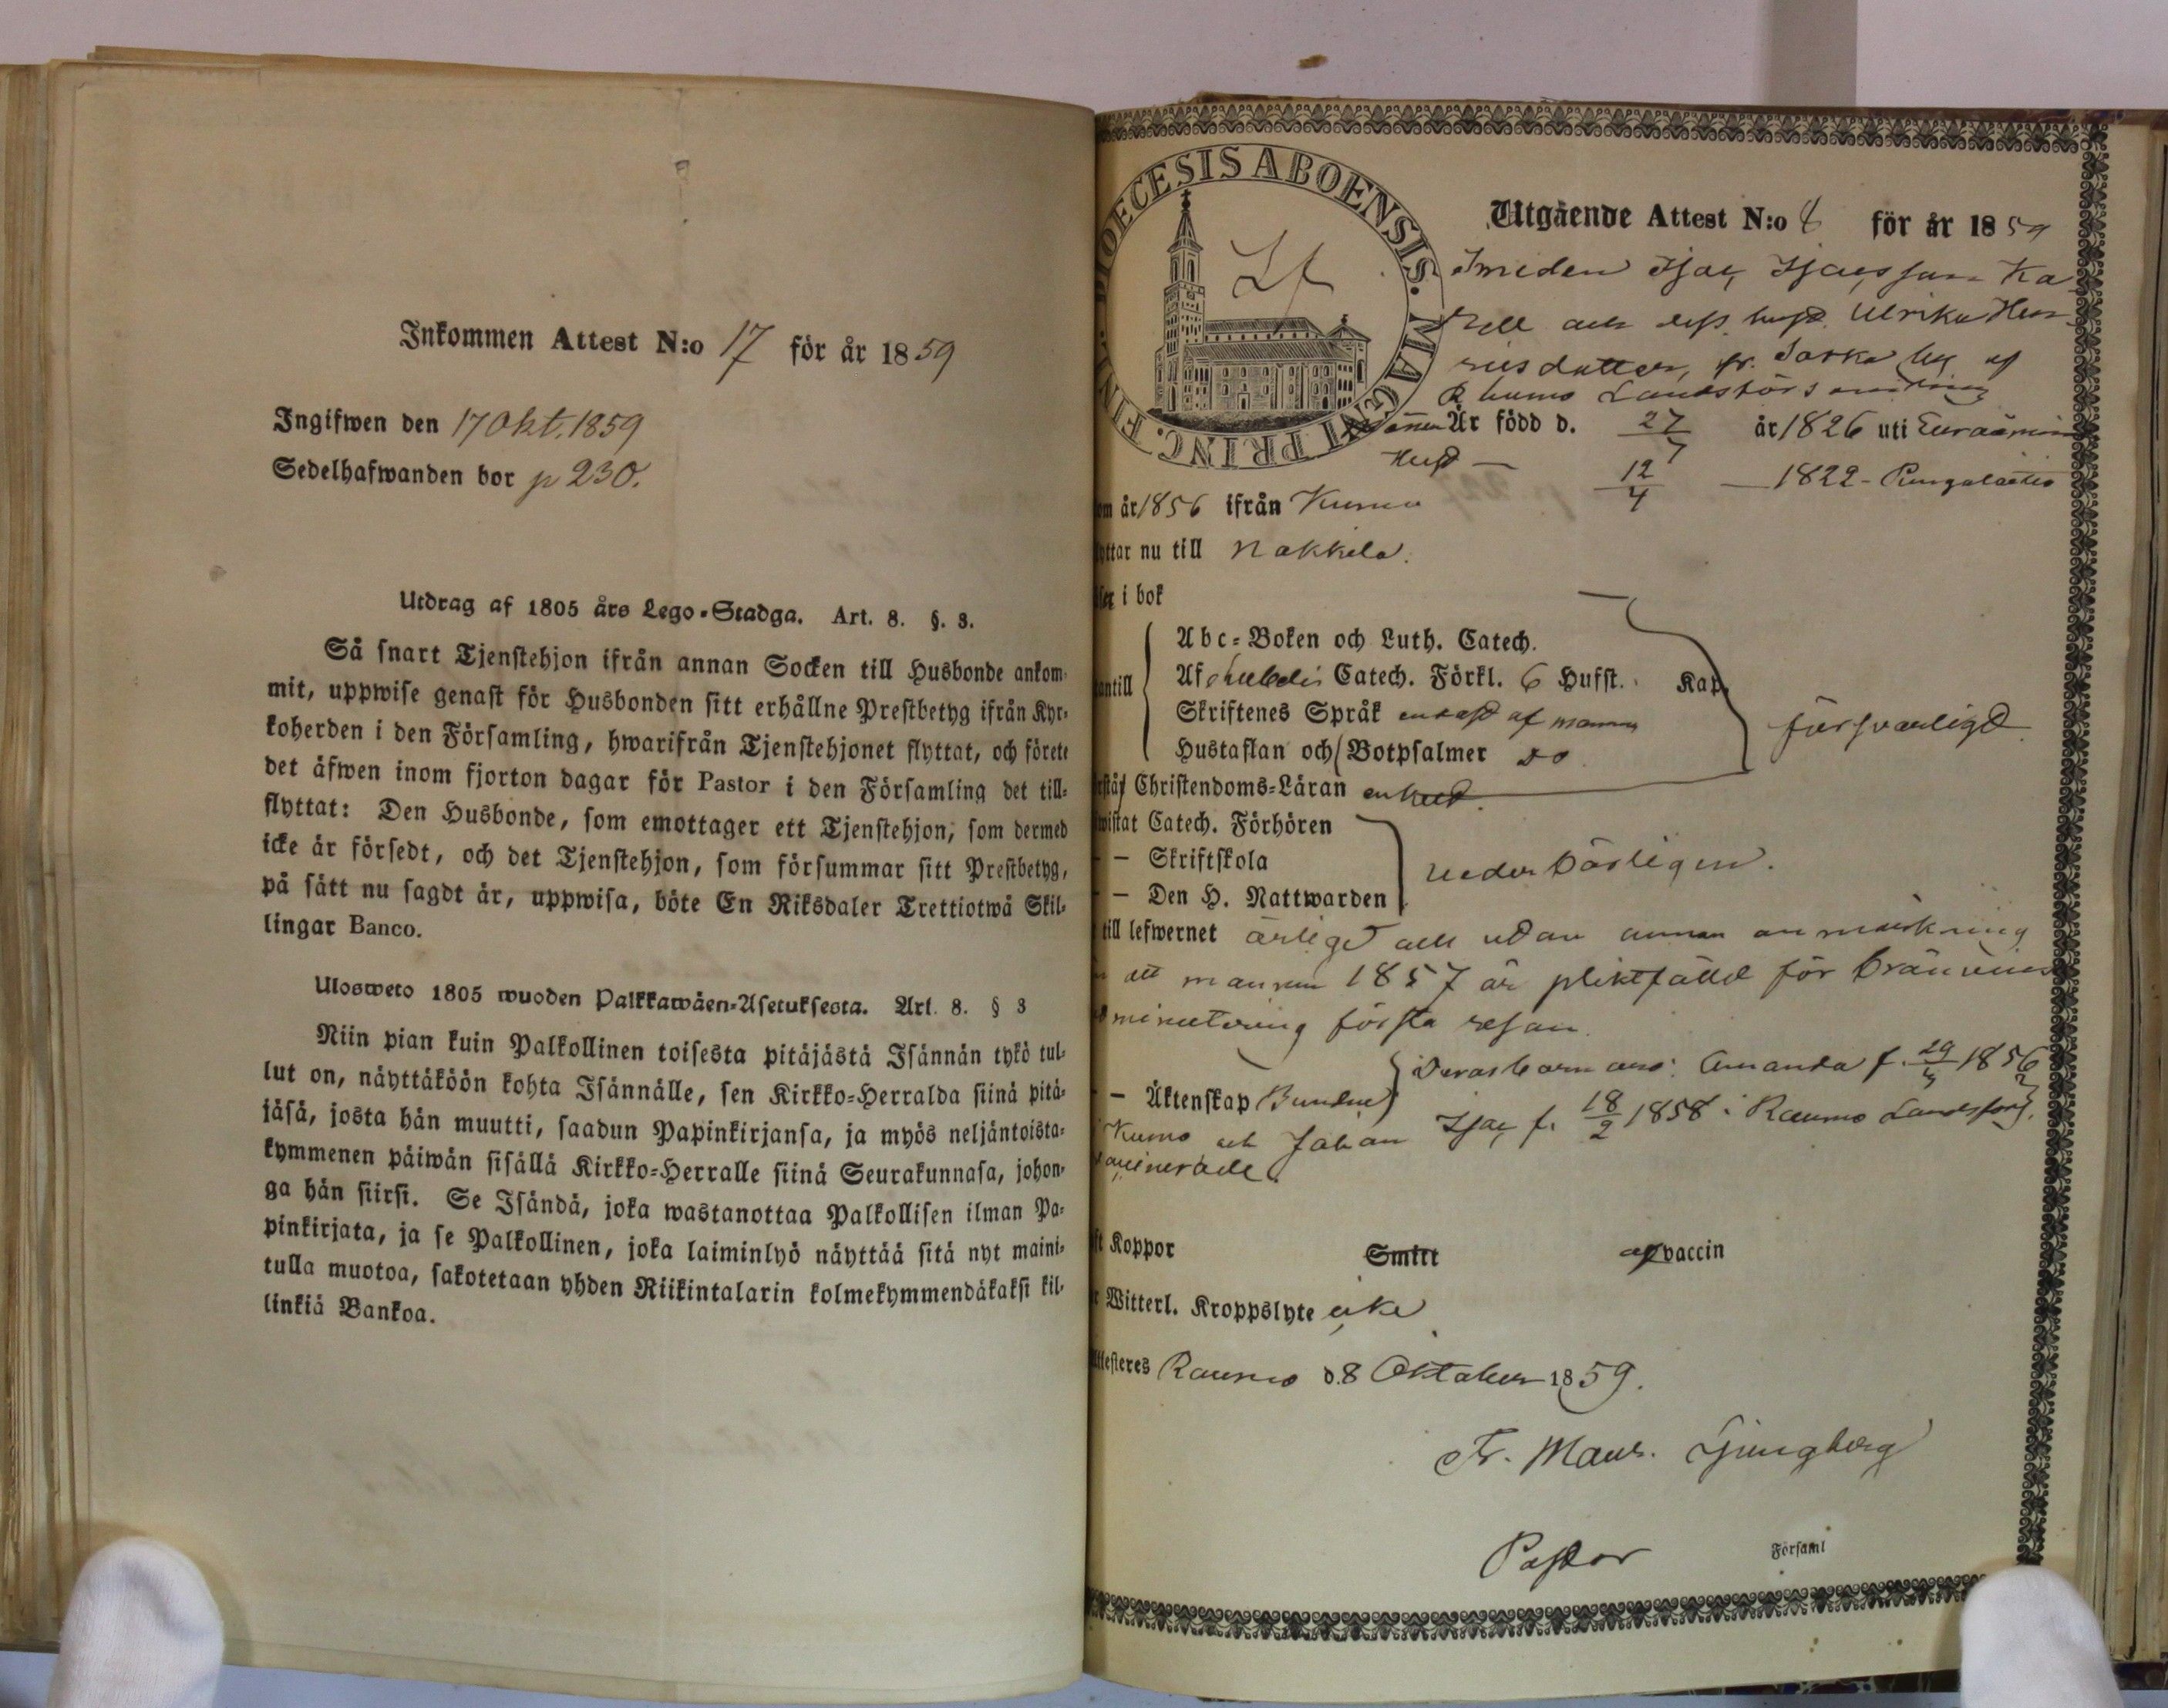 Inkommen Attest N:o 17 för år 1859
Ingifwen den 17 Okt. 1859
Sedelhafwanden bor p 230.
Utdrag af 1805 års Lego-Stadga. Art. 8. §. 3.
Så snart Tjenstehjon ifrån annan Socken till Husbonde ankom-
mit, uppwise genast för Husbonden sitt erhållne Prestbetyg ifrån Kyr-
koherden i den Församling, hwarifrån Tjenstehjonet flyttat, och förete
det äfwen inom fjorton dagar för Pastor i den Församling det till-
flyttat: Den Husbonde, som emottager ett Tjenstehjon, som dermed
icke är försedt, och det Tjenstehjon, som försummar sitt Prestbetyg,
på sätt nu sagdt är, uppwisa, böte En Riksdaler Trettiotwå Skil-
lingar Banco.
Ulosweto 1805 wuoden Palkkawäen-Asetuksesta. Art. 8. § 3
Niin pian kuin Palkollinen toisesta pitäjästä Isännän tykö tul-
lut on, näyttäköön kohta Isännälle, sen Kirkko-Herralda siinä pitä-
jäsä, josta hän muutti, saadun Papinkirjansa, ja myös neljäntoista-
kymmenen päiwän sisällä Kirkko-Herralle siinä Seurakunnasa, johon-
ga hän siirsi. Se Isändä, joka wastanottaa Palkollisen ilman Pa-
pinkirjata, ja se Palkollinen, joka laiminlyö näyttää sitä nyt maini-
tulla muotoa, sakotetaan yhden Riikintalarin kolmekymmendäkaksi kil-
linkiä Bankoa.
DIOECESIS ABOENSIS. MAGNI PRINC. FINL.
Utgående Attest N:o 8 för år 1859
Smeden Isac Isacsson Ka
rell och dess hust. Ulrika Hen
ricsdotter, fr. Sorka by af
Raumo Landsförsamling
Är född d. 27/7 år 1826 uti Euraåminne
Hust — 12/4 — 1822 - Pungalaitio
om år 1856 ifrån Kumo
yttar nu till Nakkila.
i bok
Abc-Boken och Luth. Catech.
antill Af Catech. Förkl. 6 Hufst. Kap.
Skriftenes Språk endast af mannen
försvarligt
Hustaflan och Botpsalmer do
Christendoms-Läran enkelt.
wistat Catech. Förhören
– Skriftskola
vederbörligen.
– Den H. Nattwarden
till lefwernet ärligt och utan annan anmärkning
än att mannen 1857 är pliktfälld för bränvins
minutering första resan
Deras barn äro: Amanda f. 29/4 1856
– Äktenskap Bundne
i Kumo och Johan Isac f. 18/2 1858 i Raumo Landsförs.
vaccinerade.
ft Koppor Smitt af vaccin
Witterl. Kroppslyte icke
Attesteres Raumo d. 8 Oktober 1859.
Fr. Maur. Ljungberg
Pastor Församl